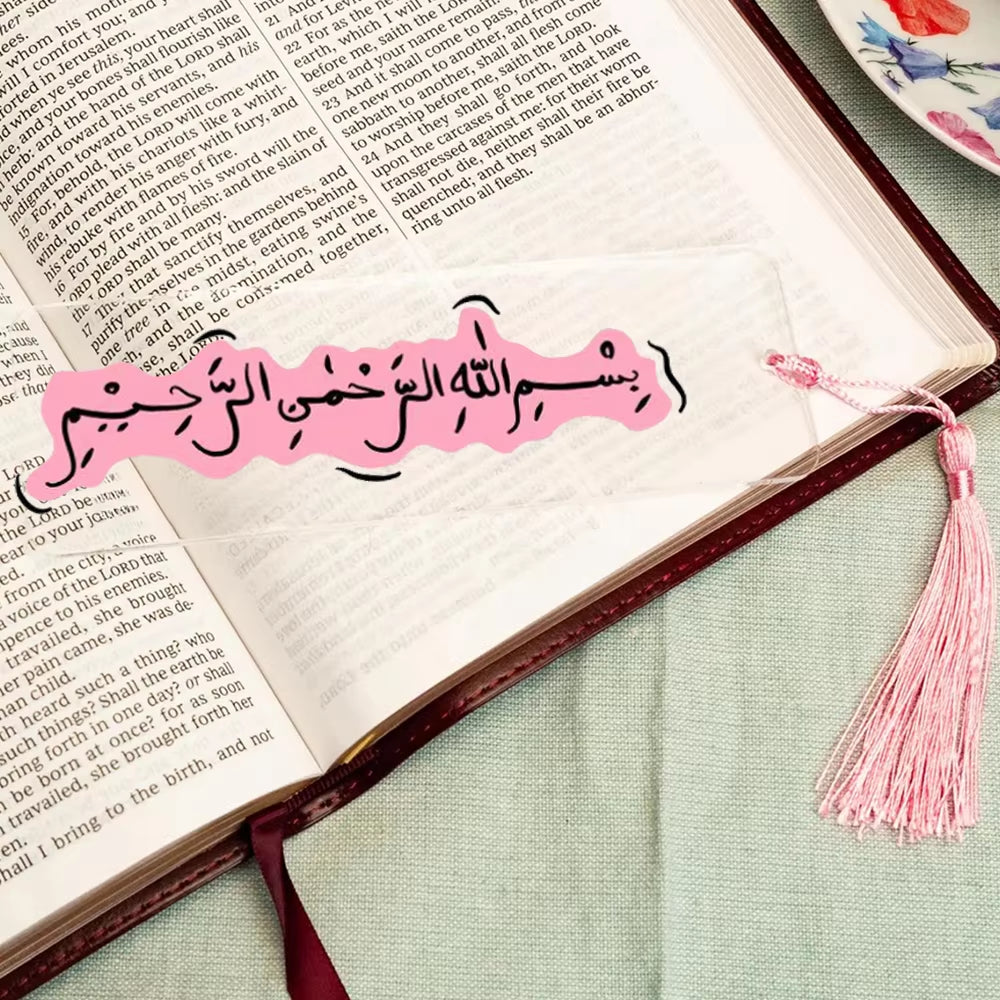 her side
whom his moth
will I comfort you; and y
forted in Jerusalem.
when ye see this, your heart shall
and your bones shall flourish like
herb, and the hand of the LORD shall
known toward his servants, and his
indignation toward his enemies.
15 For, behold, the LORD will come with
fire, and with his chariots like a whirl-
wind, to render his anger with fury, and
his rebuke with flames of fire.
16 For by fire and by his sword will the
LORD plead with all flesh: and the slain of
LORD shall be many.
17 They that sanctify themselves, and
purify themselves in the gardens behind
one tree in the midst, eating swine's
and the abomination, and the
se, shall be consumed together,
the LORD
21 And I
and for Levi
22 For as the new
earth, which I will
before me, saith the LORD
seed and your name remain.
23 And it shall come to pass, that
one new moon to another, and from one
sabbath to another, shall all flesh come
to worship before me, saith the LORD.
24 And they shall go forth, and look
upon the carcases of the men that have
transgressed against me: for their worm
shall not die, neither shall their fire be
quenched; and they shall be an abhor-
ring unto all flesh.
بِسْمِ اللّٰهِ الرَّحْمٰنِ الرَّحِيْمِ
and
when I
they did
that
LORD
your
the LORD be
ear to your joy
ed.
from the city, a voice
voice of the LORD that
pence to his enemies.
travailed, she brought
her pain came, she was de-
man child.
heard such a thing? who
such things? Shall the earth be
bring forth in one day? or shall
be born at once? for as soon
travailed, she brought forth her
en.
hall I bring to the birth, and not